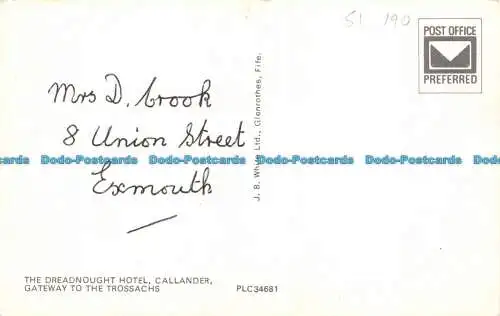 51 190
POST OFFICE
PREFERRED
Mrs D. Crook
8 Union Street
Dodo-Postcards Dodo-Postcards Dodo-Postcards Dodo-Postcards
Exmouth
J. B. White Ltd., Glenrothes, Fife.
THE DREADNOUGHT HOTEL, CALLANDER,
GATEWAY TO THE TROSSACHS
PLC34681